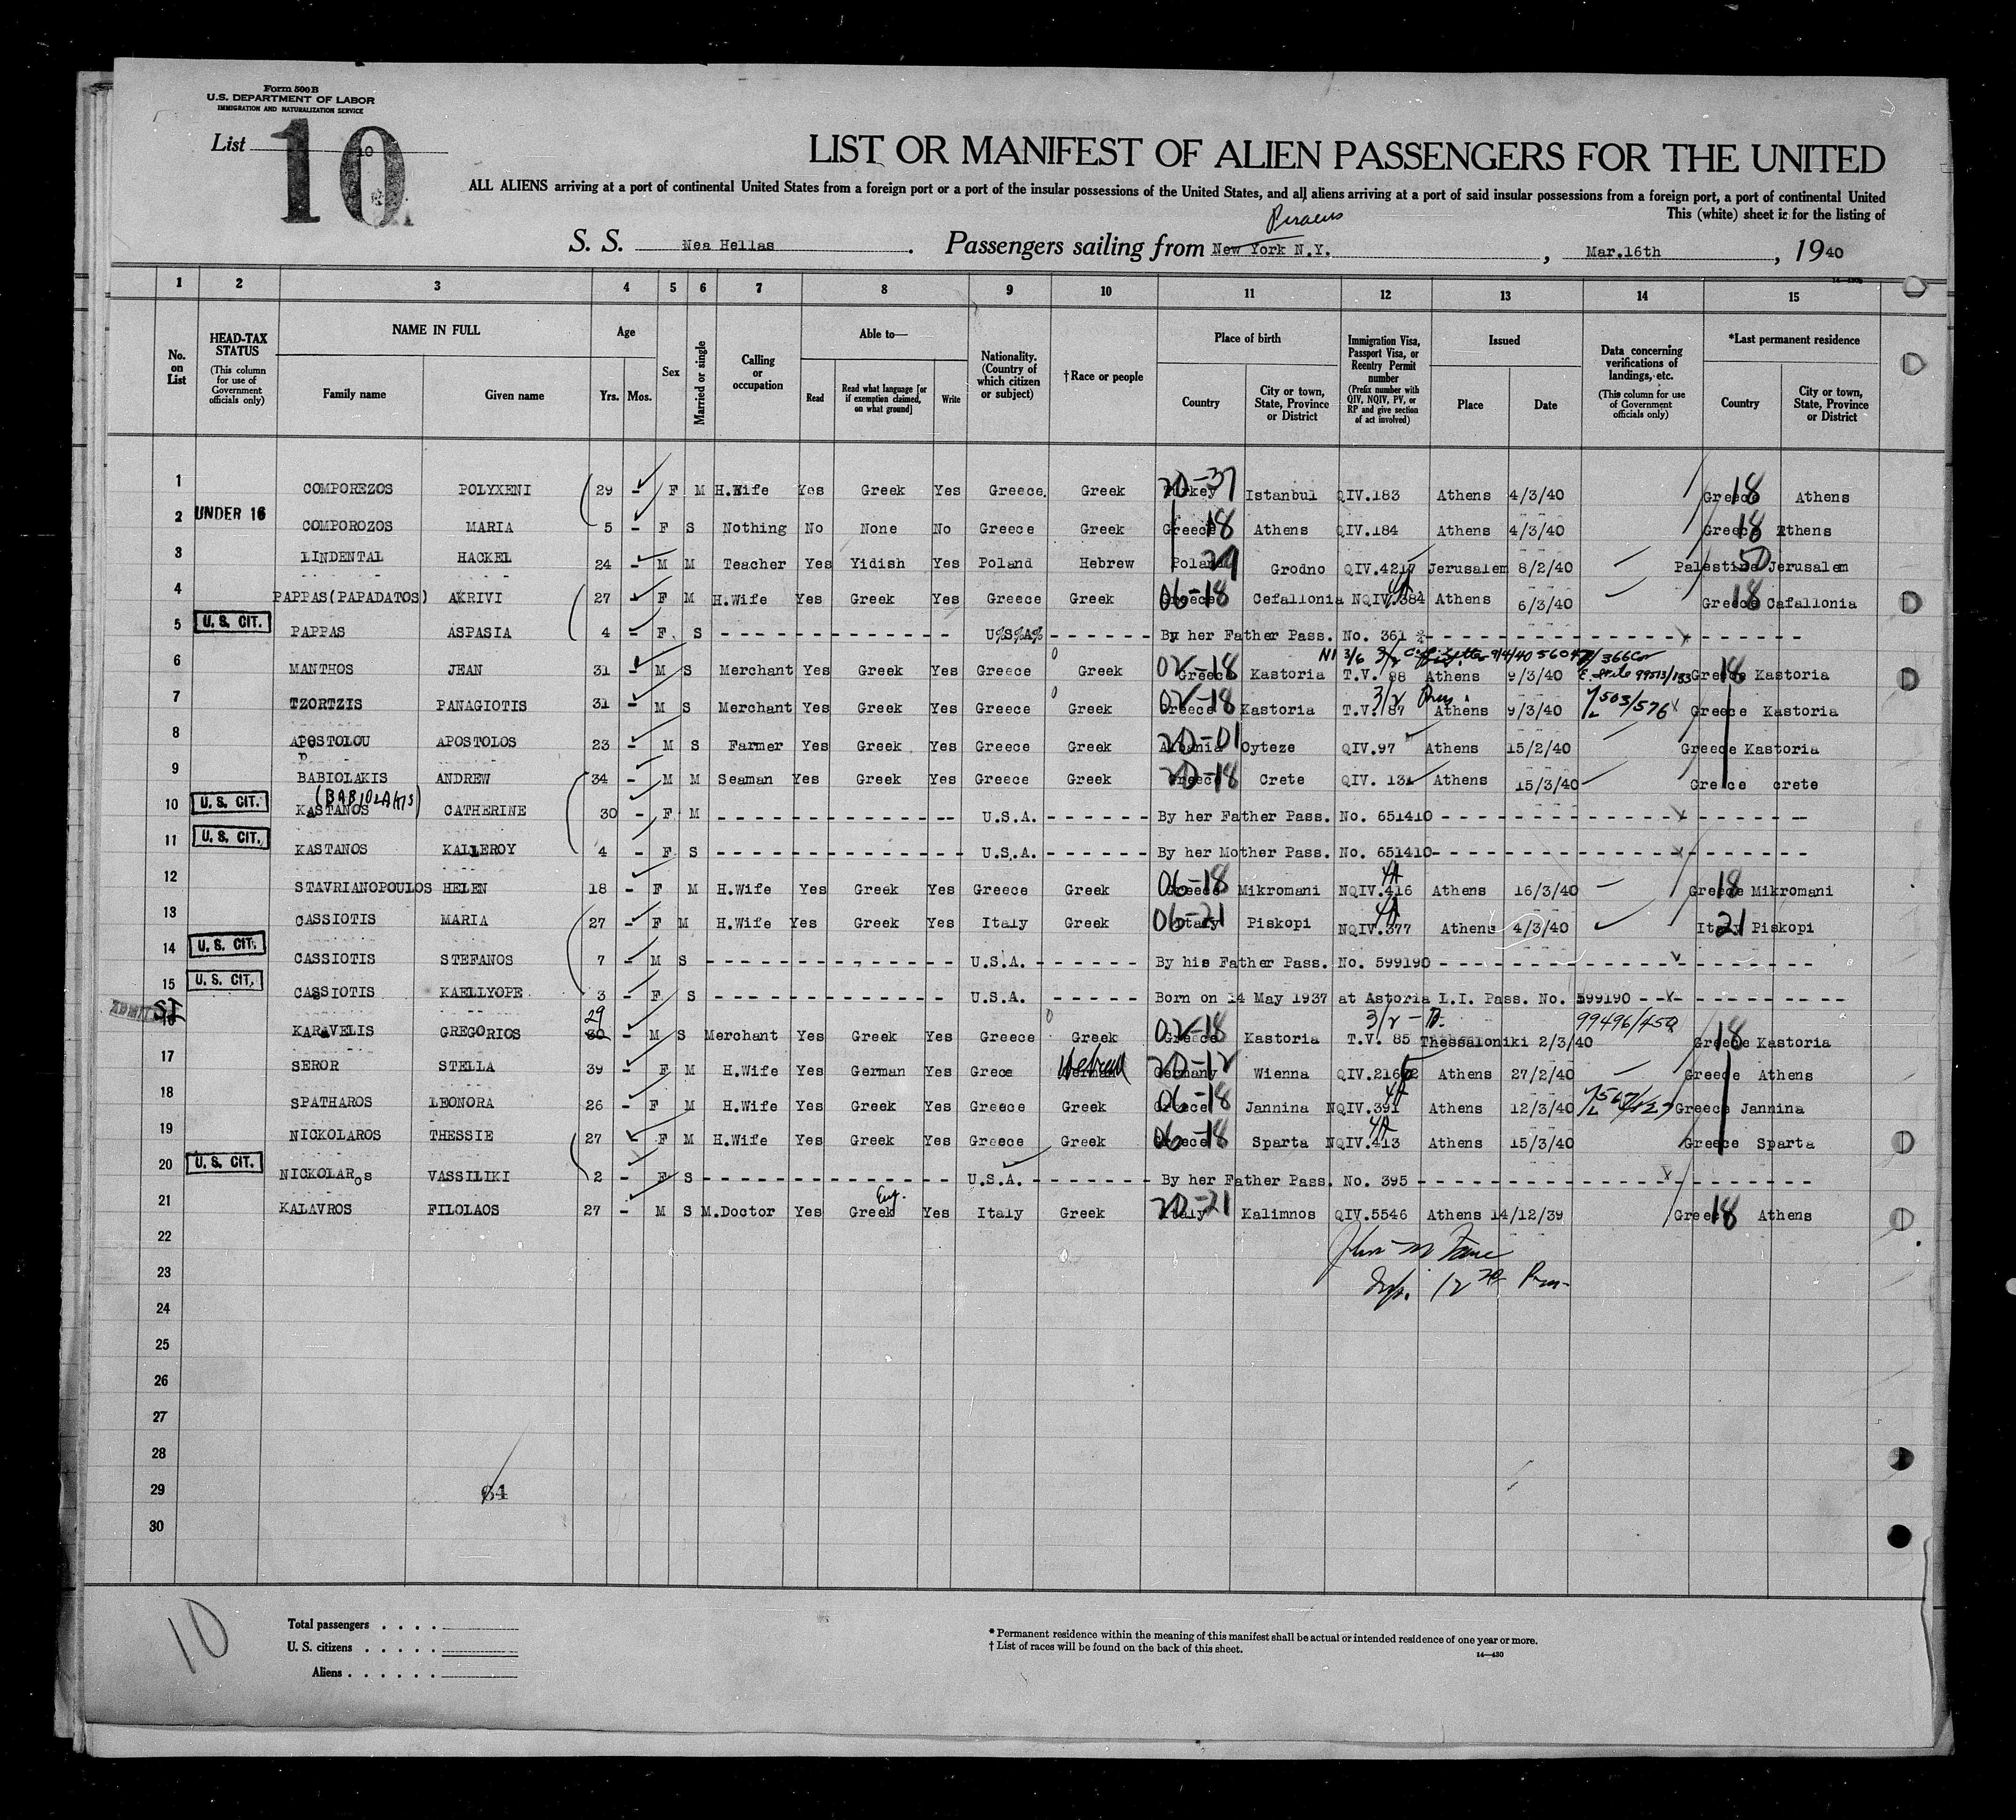 Form 500 B
U.S. DEPARTMENT OF LABOR
IMMIGRATION AND NATURALIZATION SERVICE
List 10
10
LIST OR MANIFEST OF ALIEN PASSENGERS FOR THE UNITED
ALL ALIENS arriving at a port of continental United States from a foreign port or a port of the insular possessions of the United States, and all aliens arriving at a port of said insular possessions from a foreign port, a port of continental United
This (white) sheet is for the listing of
Piraeus
S. S. Nea Hellas. Passengers sailing from New York N.Y., Mar.16th, 1940
1 2 3 4 5 6 7 8 9 10 11 12 13 14 15
No. on List
HEAD-TAX STATUS
(This column for use of Government officials only)
NAME IN FULL
Family name Given name
Age
Yrs. Mos.
Sex
Married or single
Calling or occupation
Able to—
Read
Read what language [or if exemption claimed, on what ground]
Write
Nationality. (Country of which citizen or subject)
†Race or people
Place of birth
Country
City or town, State, Province or District
Immigration Visa, Passport Visa, or Reentry Permit number
(Prefix number with QIV, NQIV, PV, or RP and give section of act involved)
Issued
Place Date
Data concerning verifications of landings, etc.
(This column for use of Government officials only)
*Last permanent residence
Country
City or town, State, Province or District
1 COMPOREZOS POLYXENI 29 - F M H.Wife Yes Greek Yes Greece. Greek Turkey 20-37 Istanbul QIV.183 Athens 4/3/40 Greece 18 Athens
2 UNDER 16 COMPOROZOS MARIA 5 - F S Nothing No None No Greece Greek Greece 18 Athens QIV.184 Athens 4/3/40 Greece 18 Athens
3 LINDENTAL HACKEL 24 - M M Teacher Yes Yidish Yes Poland Hebrew Poland 29 Grodno QIV.4217 Jerusalem 8/2/40 Palestine 50 Jerusalem
4 PAPPAS(PAPADATOS) AKRIVI 27 - F M H.Wife Yes Greek Yes Greece Greek Greece 06-18 Cefallonia NQIV.384 4A Athens 6/3/40 Greece 18 Cafallonia
5 U. S. CIT. PAPPAS ASPASIA 4 - F S U%S%A% By her Father Pass. No. 361
6 MANTHOS JEAN 31 - M S Merchant Yes Greek Yes Greece Greek Greece 02-18 Kastoria T.V. 88 Athens 9/3/40 99513/133 Greece 18 Kastoria
7 TZORTZIS PANAGIOTIS 31 - M S Merchant Yes Greek Yes Greece Greek Greece 02-18 Kastoria T.V. 87 3/2 Athens 9/3/40 503/576 Greece Kastoria
8 APOSTOLOU APOSTOLOS 23 - M S Farmer Yes Greek Yes Greece Greek Albania 20-01 Oyteze QIV.97 Athens 15/2/40 Greece Kastoria
9 BABIOLAKIS ANDREW 34 - M M Seaman Yes Greek Yes Greece Greek Greece 20-18 Crete QIV. 131 Athens 15/3/40 Greece crete
(BABIOLAKIS)
10 U. S. CIT. KASTANOS CATHERINE 30 - F M U.S.A. By her Father Pass. No. 651410
11 U. S. CIT. KASTANOS KALLEROY 4 - F S U.S.A. By her Mother Pass. No. 651410
12 STAVRIANOPOULOS HELEN 18 - F M H.Wife Yes Greek Yes Greece Greek Greece 06-18 Mikromani NQIV.416 4A Athens 16/3/40 Greece 18 Mikromani
13 CASSIOTIS MARIA 27 - F M H.Wife Yes Greek Yes Italy Greek Italy 06-21 Piskopi NQIV.377 4A Athens 4/3/40 Italy 21 Piskopi
14 U. S. CIT. CASSIOTIS STEFANOS 7 - M S U.S.A. By his Father Pass. No. 599190
15 U. S. CIT. CASSIOTIS KAELLYOPE 3 - F S U.S.A. Born on 14 May 1937 at Astoria L.I. Pass. No. 599190
ADMITTED SI
16 KARAVELIS GREGORIOS 30 29 - M S Merchant Yes Greek Yes Greece Greek Greece 02-18 Kastoria T.V. 85 3/2 Thessaloniki 2/3/40 99496/450 Greece 18 Kastoria
17 SEROR STELLA 39 - F M H.Wife Yes German Yes Grece German Hebrew Germany 20-12 Wienna Athens 27/2/40 Greece Athens
18 SPATHAROS LEONORA 26 - F M H.Wife Yes Greek Yes Greece Greek Greece 06-18 Jannina NQIV.391 4A Athens 12/3/40 Greece Jannina
19 NICKOLAROS THESSIE 27 - F M H.Wife Yes Greek Yes Greece Greek Greece 06-18 Sparta NQIV.413 4A Athens 15/3/40 Greece Sparta
20 U. S. CIT. NICKOLAROS VASSILIKI 2 - F S U.S.A. By her Father Pass. No. 395
21 KALAVROS FILOLAOS 27 - M S M.Doctor Yes Greek Eng. Yes Italy Greek Italy 20-21 Kalimnos QIV.5546 Athens 14/12/39 Greece 18 Athens
22
23
24
25
26
27
28
29 61
30
10
Total passengers . . . .
U. S. citizens . . . . .
Aliens . . . . . .
* Permanent residence within the meaning of this manifest shall be actual or intended residence of one year or more.
† List of races will be found on the back of this sheet.
14—430